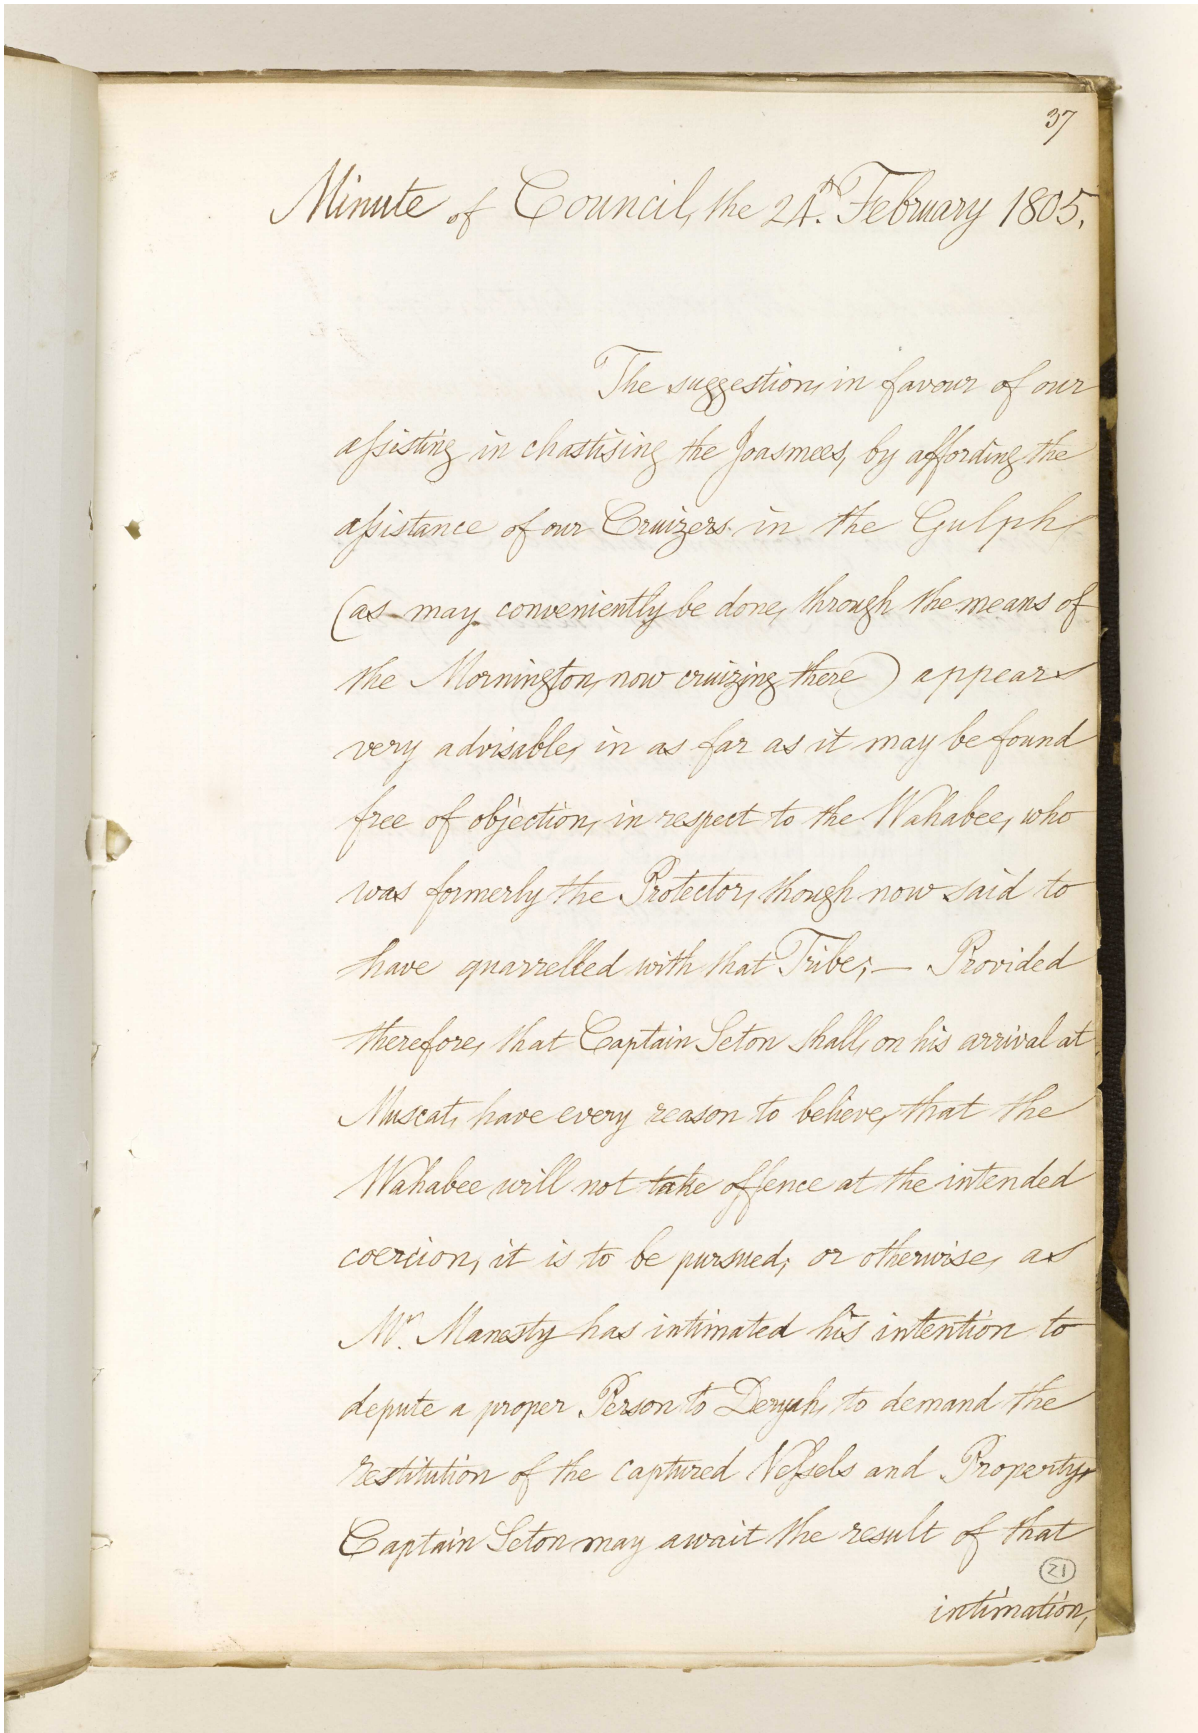 37
Minute of Council, the 24th. February 1805.
The suggestion, in favour of our
assisting in chastising the Joasmees, by affording the
assistance of our Cruizers in the Gulph,
(as may conveniently be done, through the means of
the Mornington, now cruizing there) appears
very advisable, in as far as it may be found
free of objection, in respect to the Wahabee, who
was formerly the Protector, though now said to
have quarrelled with that Tribe; — Provided
therefore, that Captain Seton shall, on his arrival at
Muscat, have every reason to believe, that the
Wahabee will not take offence at the intended
coercion, it is to be pursued; or otherwise, as
Mr. Manesty has intimated his intention to
depute a proper Person to Deryah, to demand the
restitution of the captured Vessels and Property,
Captain Seton may await the result of that
21
intimation,